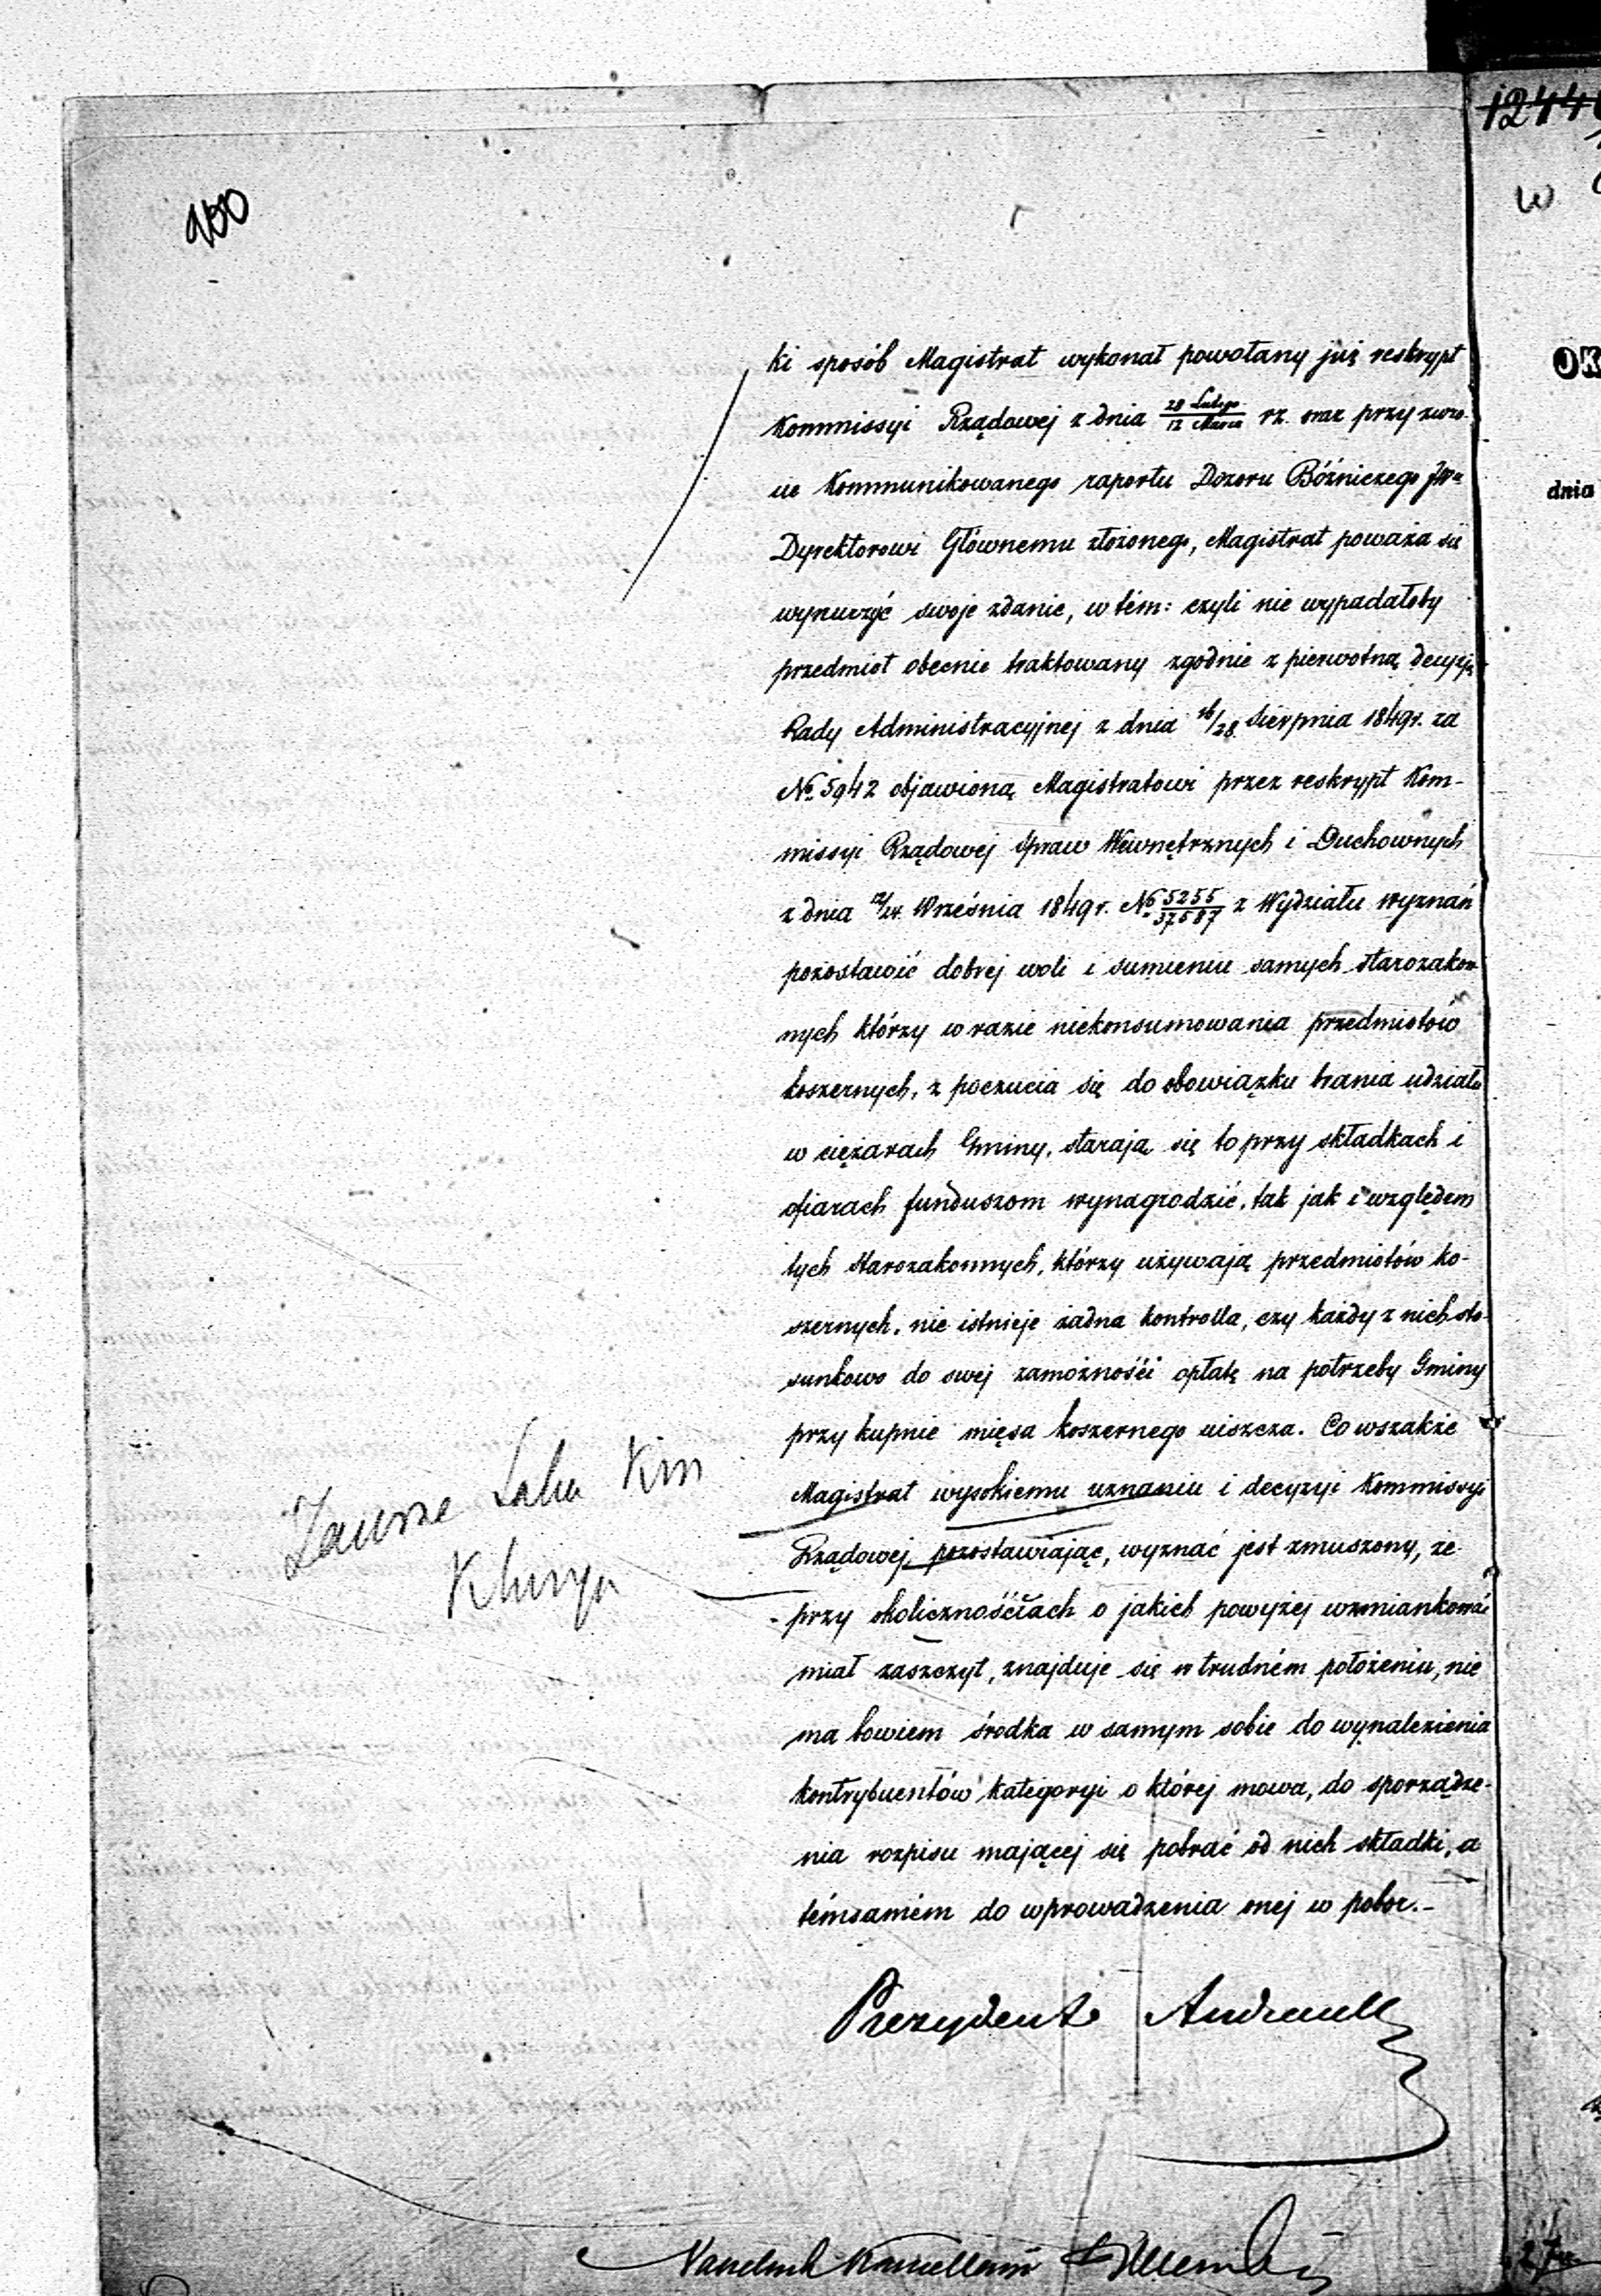 ki sposób Magistrat wykonał powołany już reskrypt
Kommissyi Rządowej z dnia 28 Lutego/12 Marca rz. oraz przy zwro-
cie Kommunikowanego raportu Dozoru Bóżniczego JWu
Dyrektorowi Głównemu złożonego, Magistrat poważa się
wynurzyć swoje zdanie, w tém: czyli nie wypadałoby
przedmiot obecnie traktowany zgodnie z pierwotną decyzją
Rady Administracyjnej z dnia 16/28 Sierpnia 1849r. za
No 5942 objawioną Magistratowi przez reskrypt Kom-
missyi Rządowej Spraw Wewnętrznych i Duchownych
z dnia 12/24 Września 1849r. No 5255/37587 z Wydziału Wyznań
pozostawić dobrej woli i sumieniu samych starozakon-
nych którzy w razie niekonsumowania przedmiotów
koszernych, z poczucia się do obowiązku brania udziału
w ciężarach Gminy, starają się to przy składkach i
ofiarach funduszom wynagrodzić, tak jak i względem
tych starozakonnych, którzy używają przedmiotów ko-
szernych, nie istnieje żadna kontrolla, czy każdy z nich sto-
sunkowo do swej zamożności opłatę na potrzeby Gminy
przy kupnie mięsa koszernego uiszcza. Co wszakże
Magistrat wysokiemu uznaniu i decyzyi Kommissyi
Rządowej pozostawiając, wyznać jest zmuszony, że
przy okolicznościach o jakich powyżej wzmiankować
miał zaszczyt, znajduje się w trudném położeniu, nie
ma bowiem środka w samym sobie do wynalezienia
kontrybuentów kategoryi o której mowa, do sporządze-
nia rozpisu mającej się pobrać od nich składki, a
témsamém do wprowadzenia onej w pobor.-
Prezydent Andrault
Naczelnik Kancellarii
OK
dnia